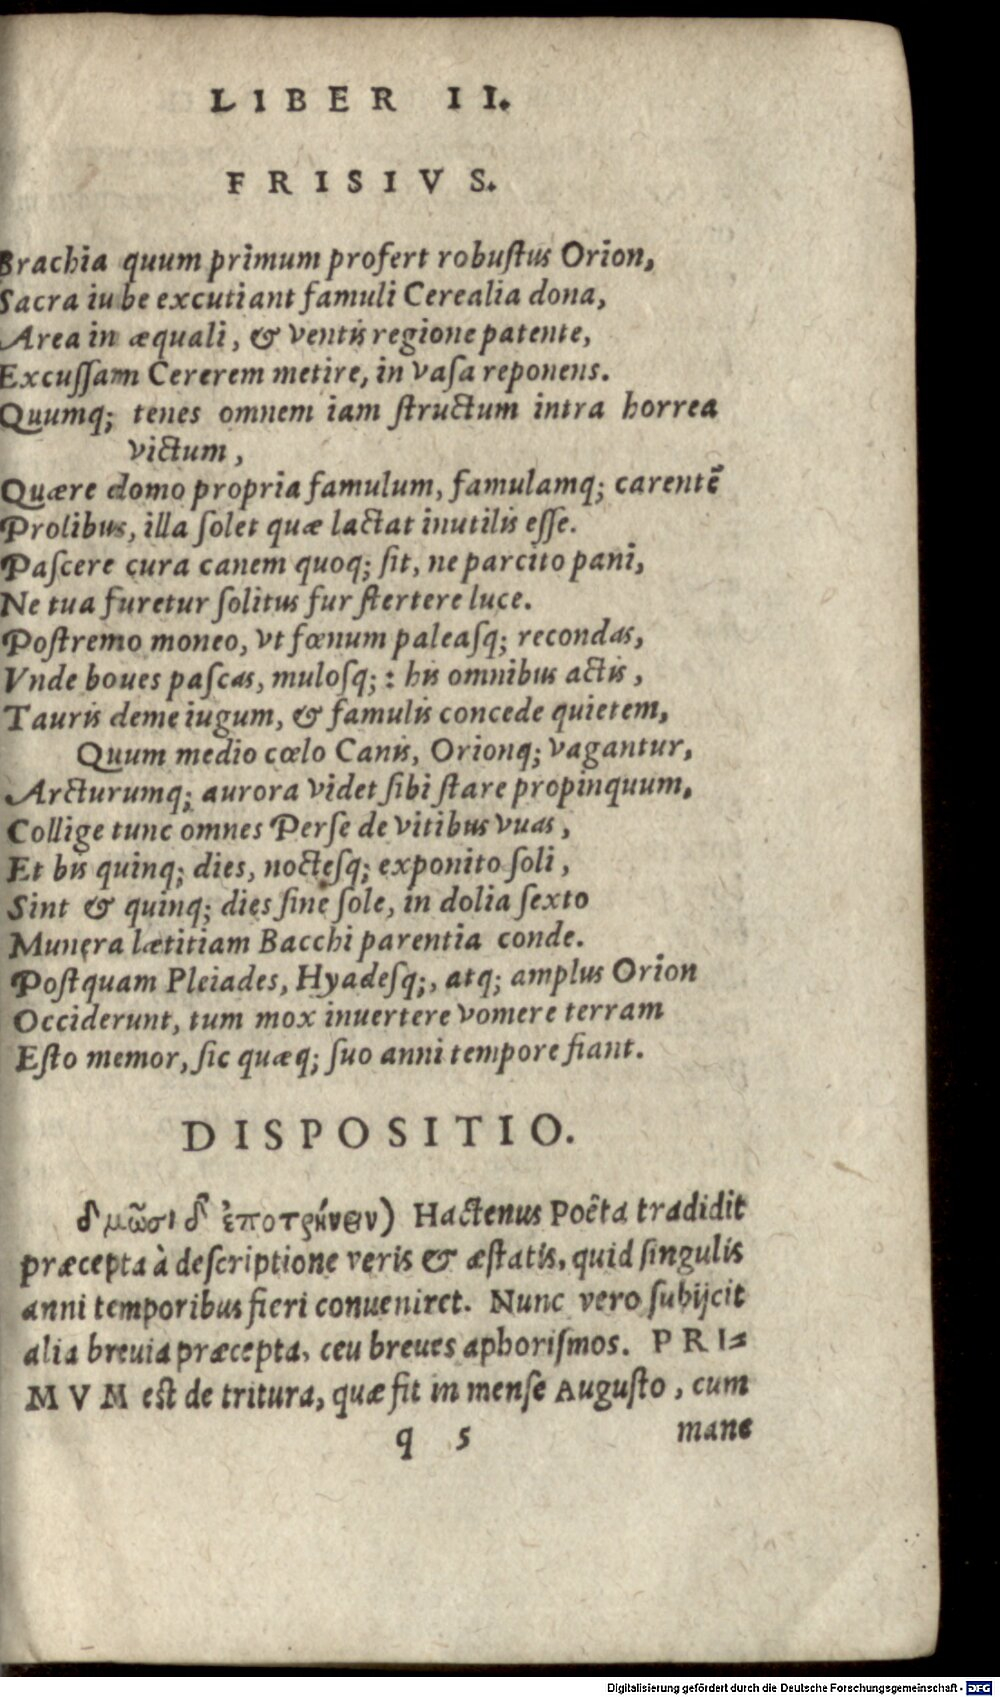 LIBER II.
FRISIVS.
Brachia quum primum profert robuſtus Orion,
Sacra iube excutiant famuli Cerealia dona,
Area in æquali, & ventis regione patente,
Excuſſam Cererem metire, in vaſa reponens.
Quumq; tenes omnem iam ſtructum intra horrea
victum,
Quære domo propria famulum, famulamq; carentē
Prolibus, illa ſolet quæ lactat inutilis eſſe.
Paſcere cura canem quoq; ſit, ne parcito pani,
Ne tua furetur ſolitus fur ſtertere luce.
Poſtremo moneo, vt fœnum paleaſq; recondas,
Vnde boues paſcas, muloſq; : his omnibus actis,
Tauris deme iugum, & famulis concede quietem,
Quum medio cœlo Canis, Orionq; vagantur,
Arcturumq; aurora videt ſibi ſtare propinquum,
Collige tunc omnes Perſe de vitibus vuas,
Et bis quinq; dies, nocteſq; exponito ſoli,
Sint & quinq; dies ſine ſole, in dolia ſexto
Munera lætitiam Bacchi parentia conde.
Poſtquam Pleiades, Hyadeſq;, atq; amplus Orion
Occiderunt, tum mox inuertere vomere terram
Eſto memor, ſic quæq; ſuo anni tempore fiant.
DISPOSITIO.
δμῶσι δ' ἐποτρύνειν) Hactenus Poêta tradidit
præcepta à deſcriptione veris & æſtatis, quid ſingulis
anni temporibus fieri conueniret. Nunc vero ſubijcit
alia breuia præcepta, ceu breues aphoriſmos. PRI⸗
MVM eſt de tritura, quæ fit in menſe Auguſto, cum
q 5 mane
Digitalisierung gefördert durch die Deutsche Forschungsgemeinschaft - DFG